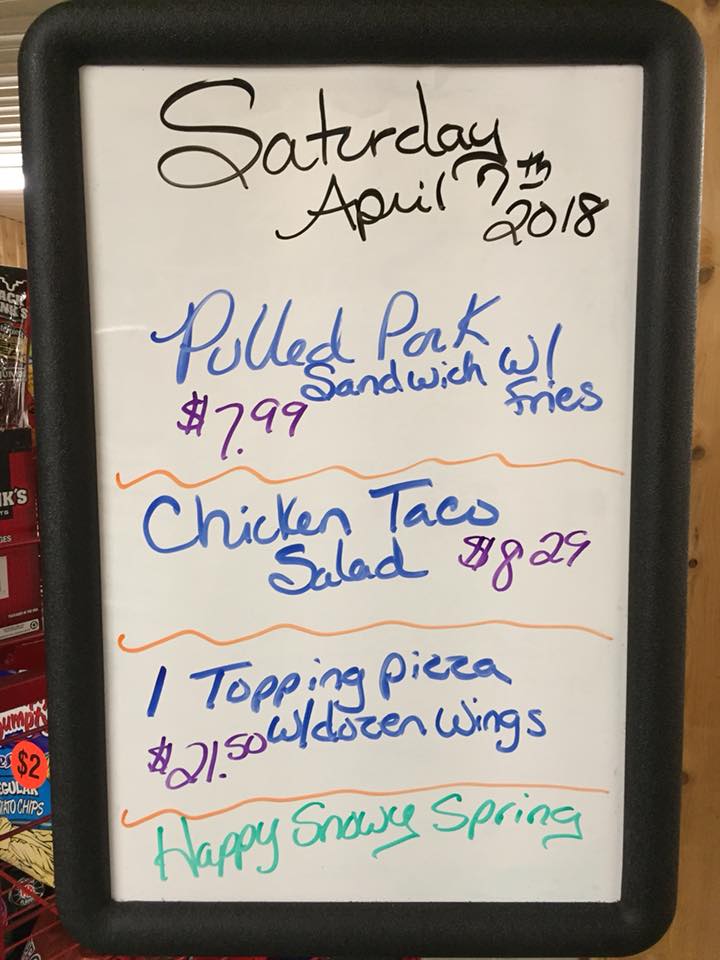 Saturday
April 7th
2018
Pulled Pork
Sandwich w/
fries
$7.99
Chicken Taco
Salad $8.29
1 Topping pizza
w/dozen wings
$21.50
Happy Snowy Spring
K'S
$2
TATO CHIPS